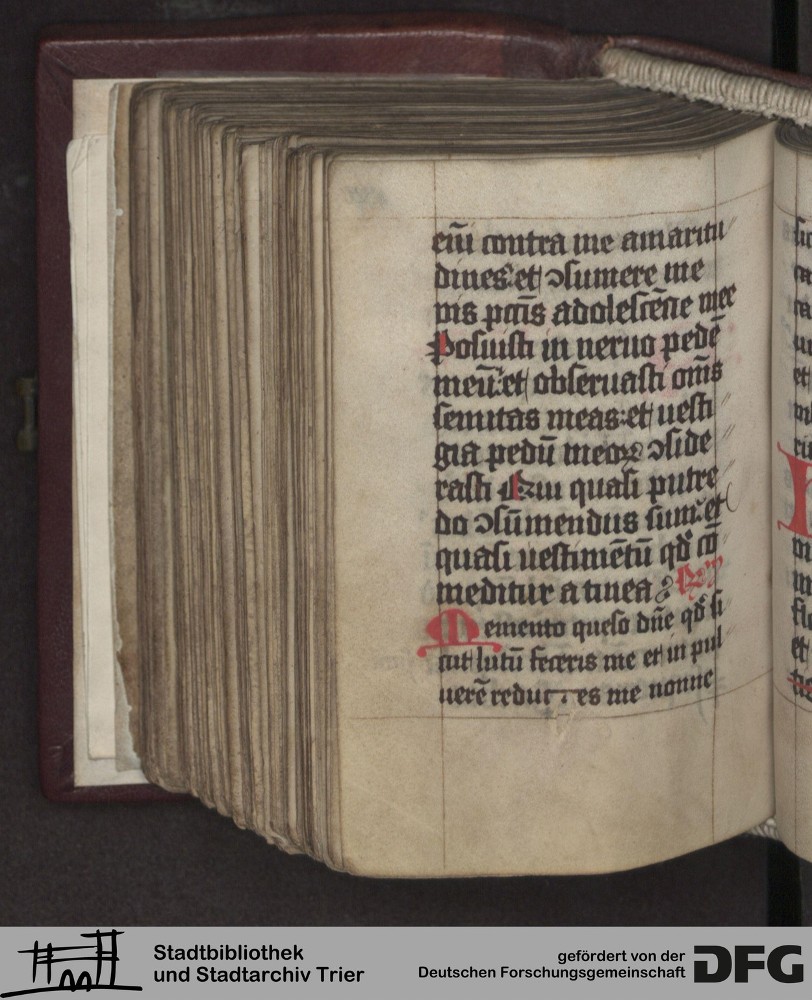 eīu contra me amaritu
dines: et ↄsumere me
vis pctīs adolescētie mee
Posuisti in neruo pedē
meū: et obseruasti om̄s
semitas meas: et uesti
gia pedū meoꝝ ↄside
rasti Qui quasi putre
do ↄsūmendus sum: et
quasi uestimētū qd̄ cō
meditur a tinea
Memento queso dn̄e qd̄ si
cut lutū feceris me et in pul
uerē reduces me nonne
Stadtbibliothek
und Stadtarchiv Trier
gefördert von der
Deutschen Forschungsgemeinschaft
DFG